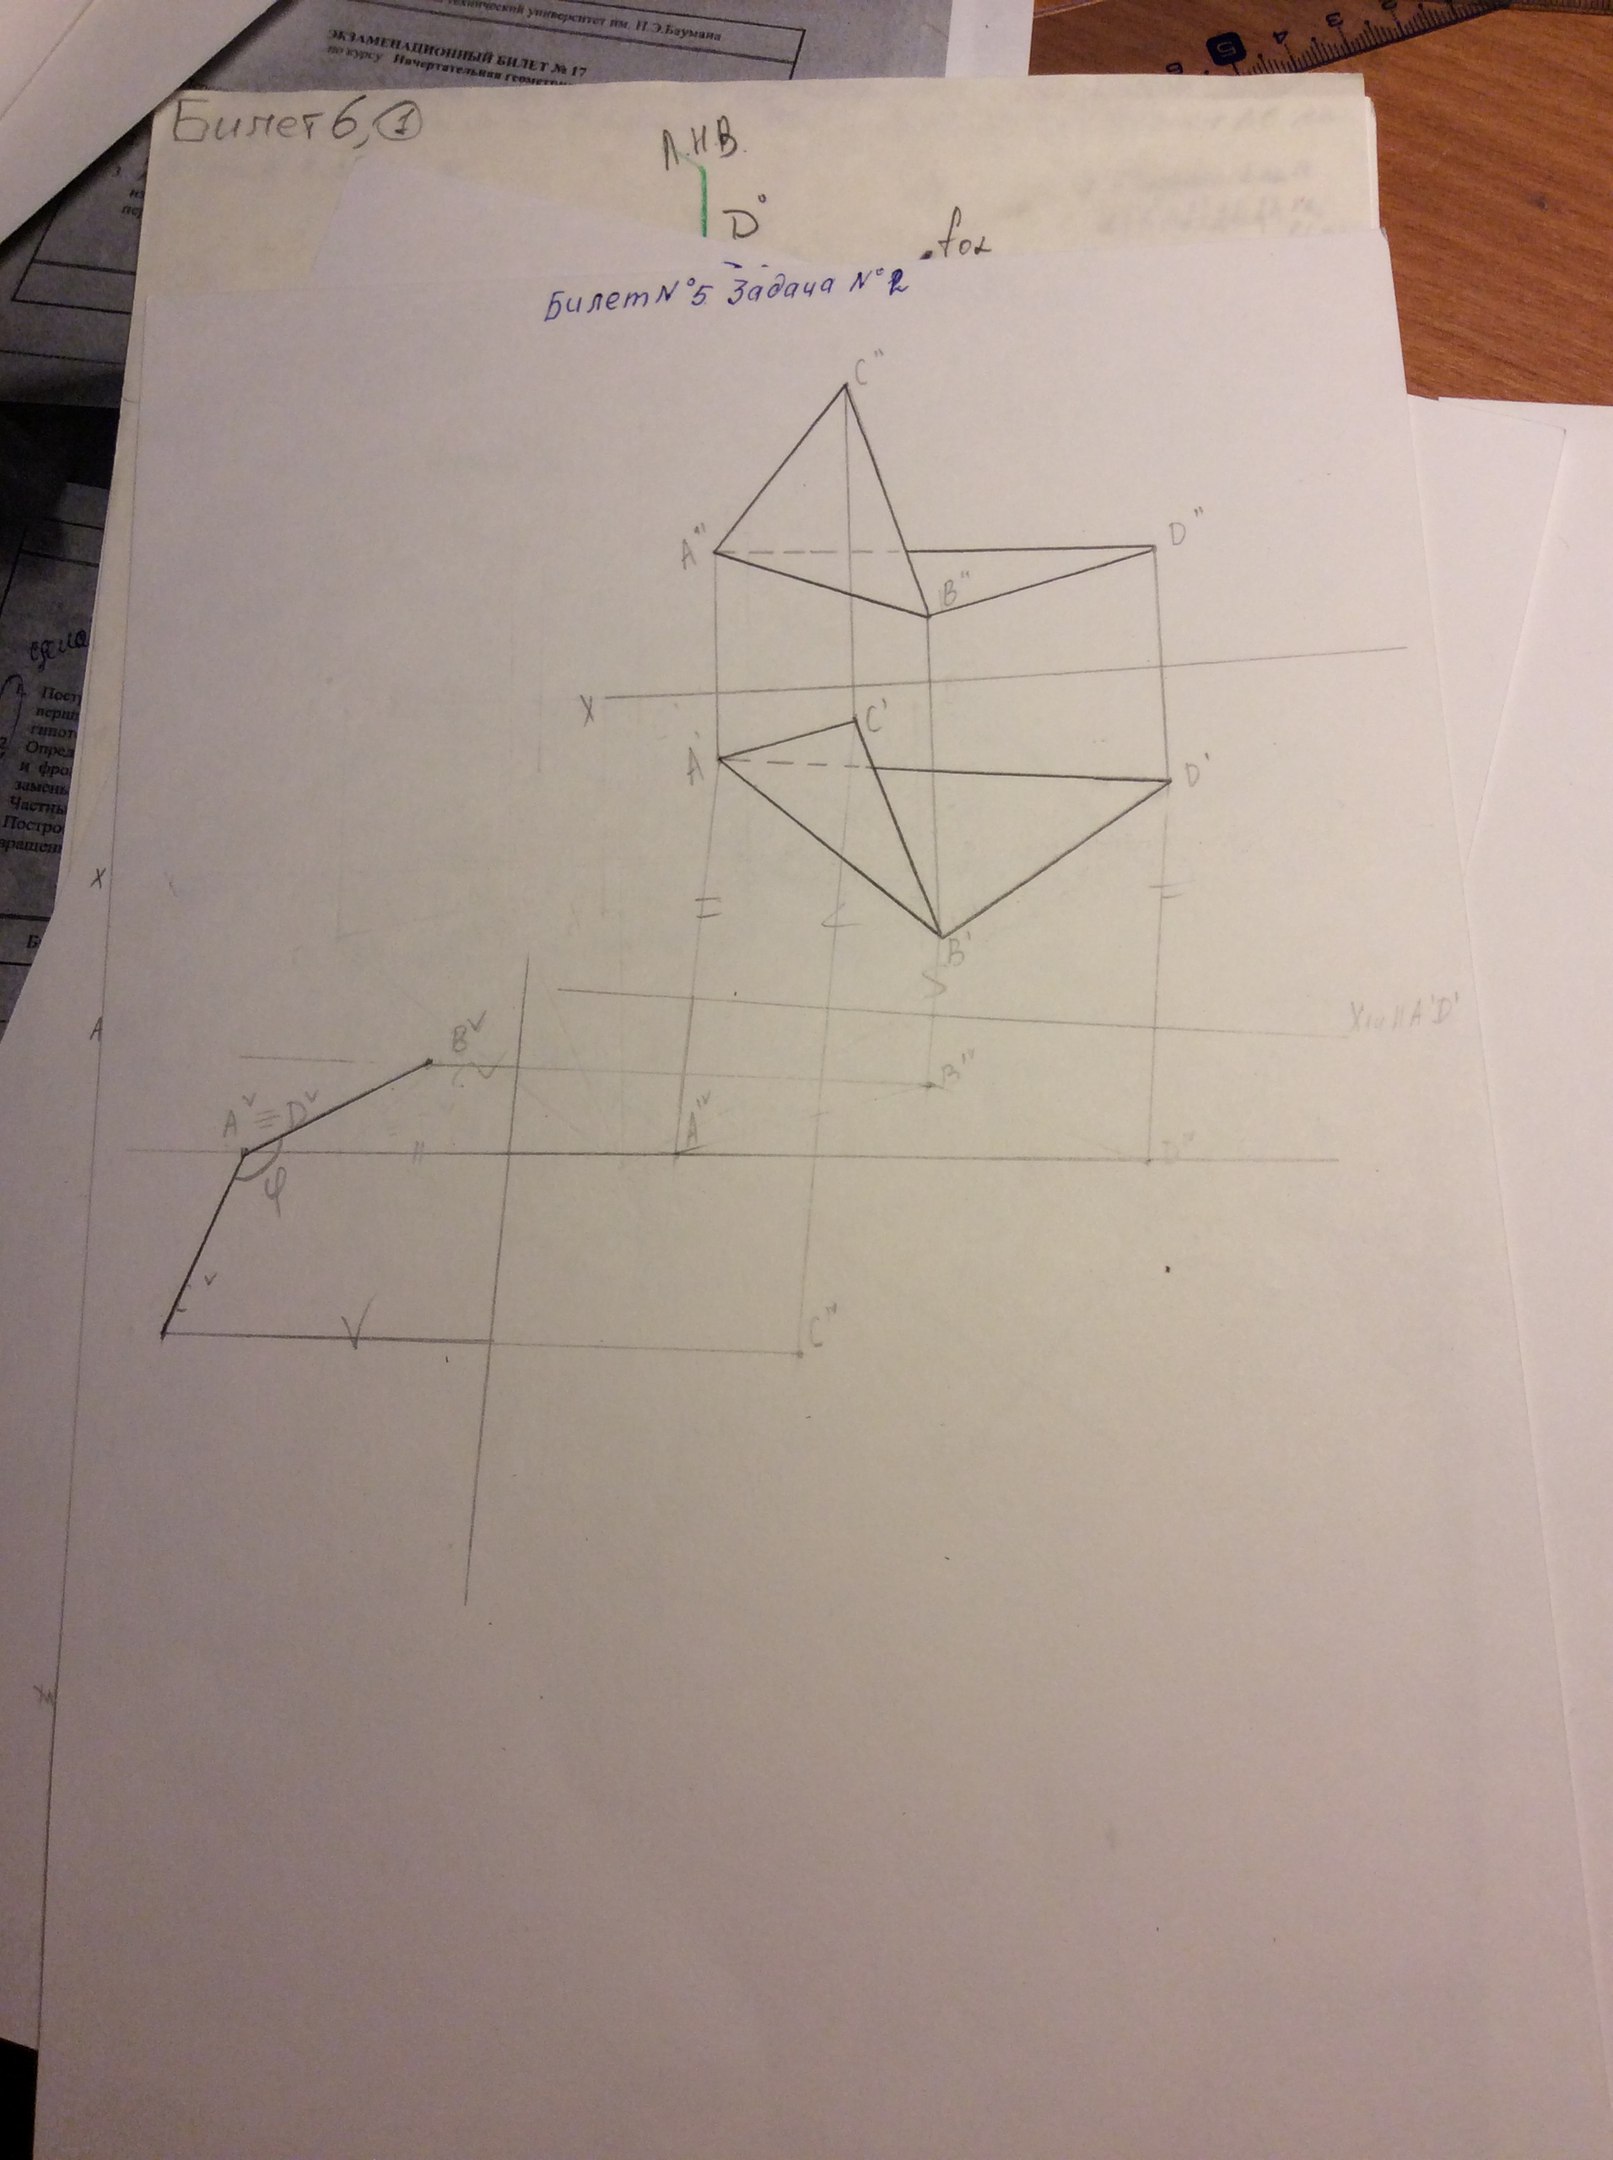 технический университет им. Н.Э.Баумана
ЭКЗАМЕНАЦИОННЫЙ БИЛЕТ № 17
по курсу Начертательная геометри
Билет 6, 1
Л.Н.В.
D°
f₀α
Билет №5 Задача №2
C"
A"
D"
B"
X
C'
A'
D'
B'
X
A
A'D'
B^V
B^IV
A^V ≡ D^V
A^IV
φ
C^IV
3
4
5
6
1. Пост
перп
гипот
Опред
и фро
замень
Частны
Постро
вращен